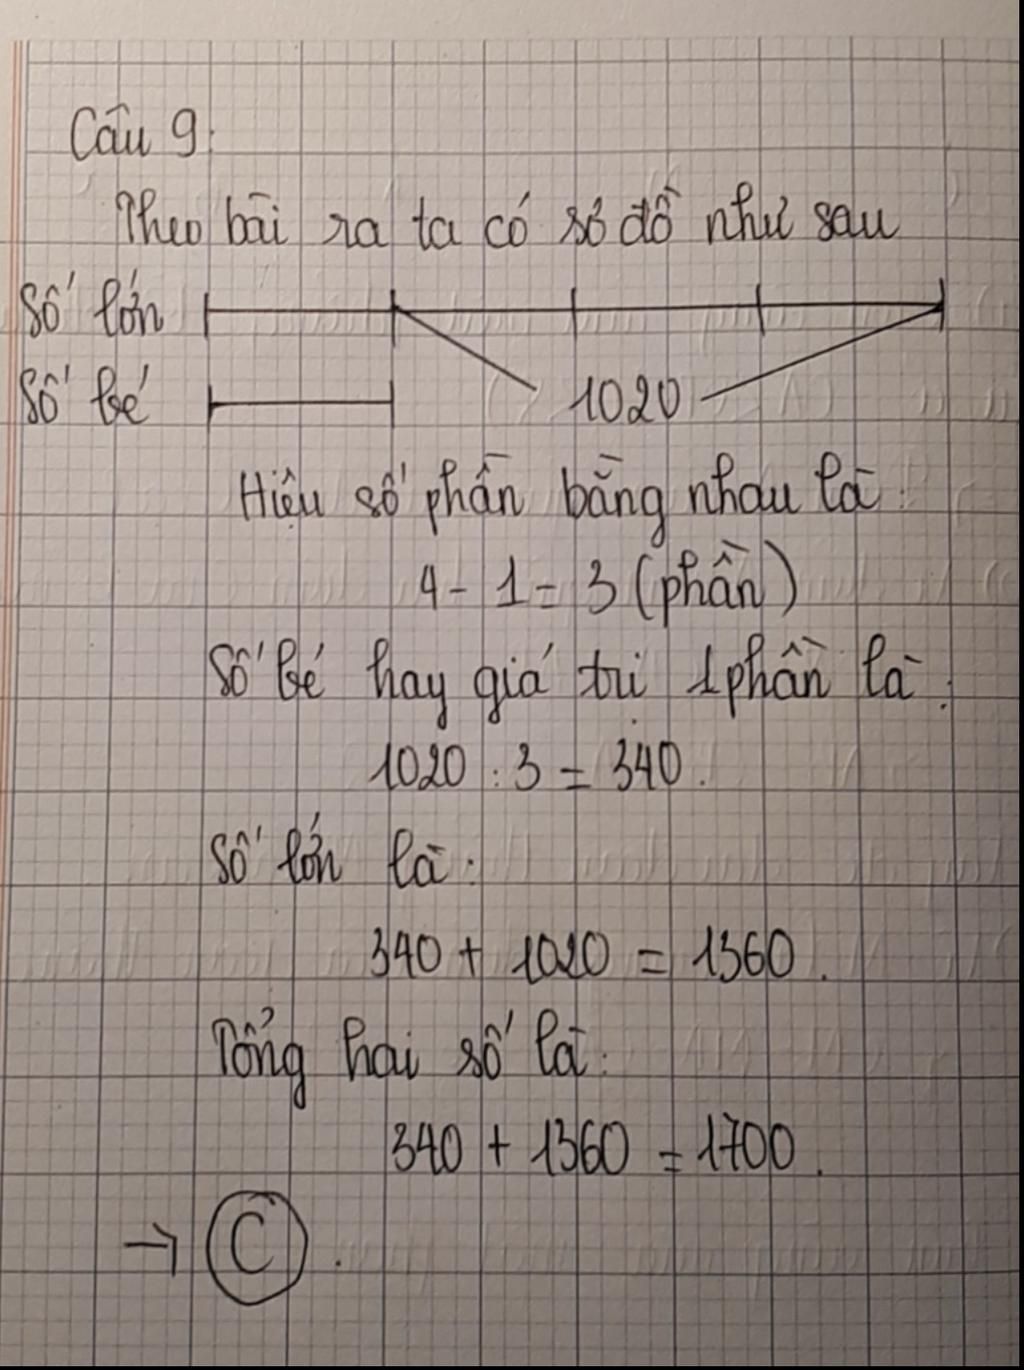 Câu 9:
Theo bài ra ta có số đồ như sau
Số lớn
Số bé
1020
Hiệu số phần bằng nhau là:
4 - 1 = 3 (phần)
Số bé hay giá trị 1 phần là:
1020 : 3 = 340.
Số lớn là:
340 + 1020 = 1360.
Tổng hai số là:
340 + 1360 = 1700.
→ C.